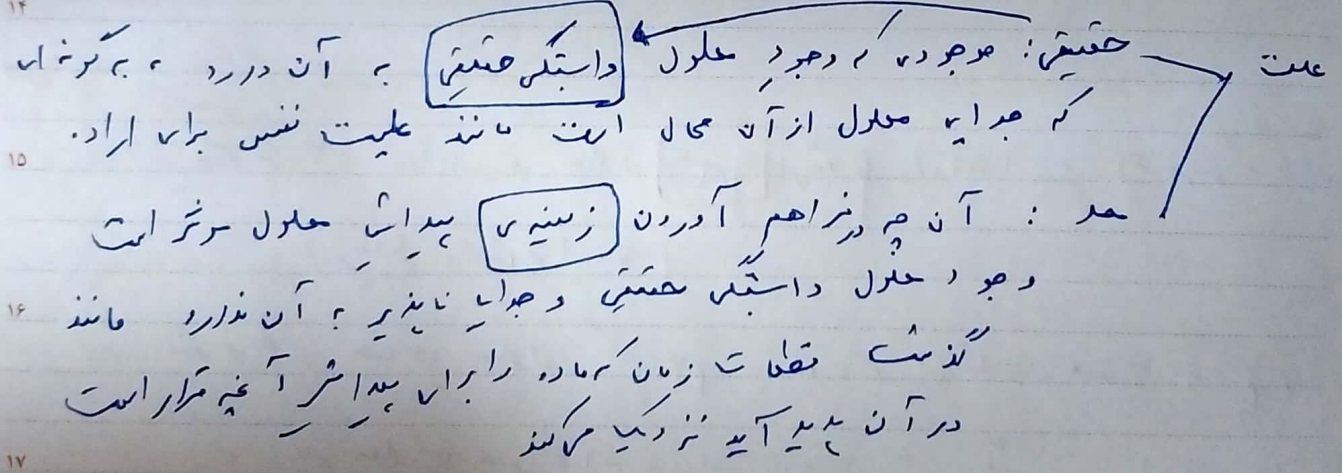 ۱۴
علت حقیقی: موجودی که وجودِ معلول وابستگی حقیقی به آن دارد، به گونه‌ای
که جدایی معلول از آن محال است مانند علیت نفس برای اراده.
۱۵
معد: آن چه در فراهم آوردن زمینه‌ی پیدایشِ معلول موثر است
وجود معلول وابستگی حقیقی و جدایی ناپذیر به آن ندارد مانند
۱۶
گذشت قطعات زمان که ماده را برای پیدایشِ آنچه قرار است
در آن پدید آید نزدیک می‌کند
۱۷